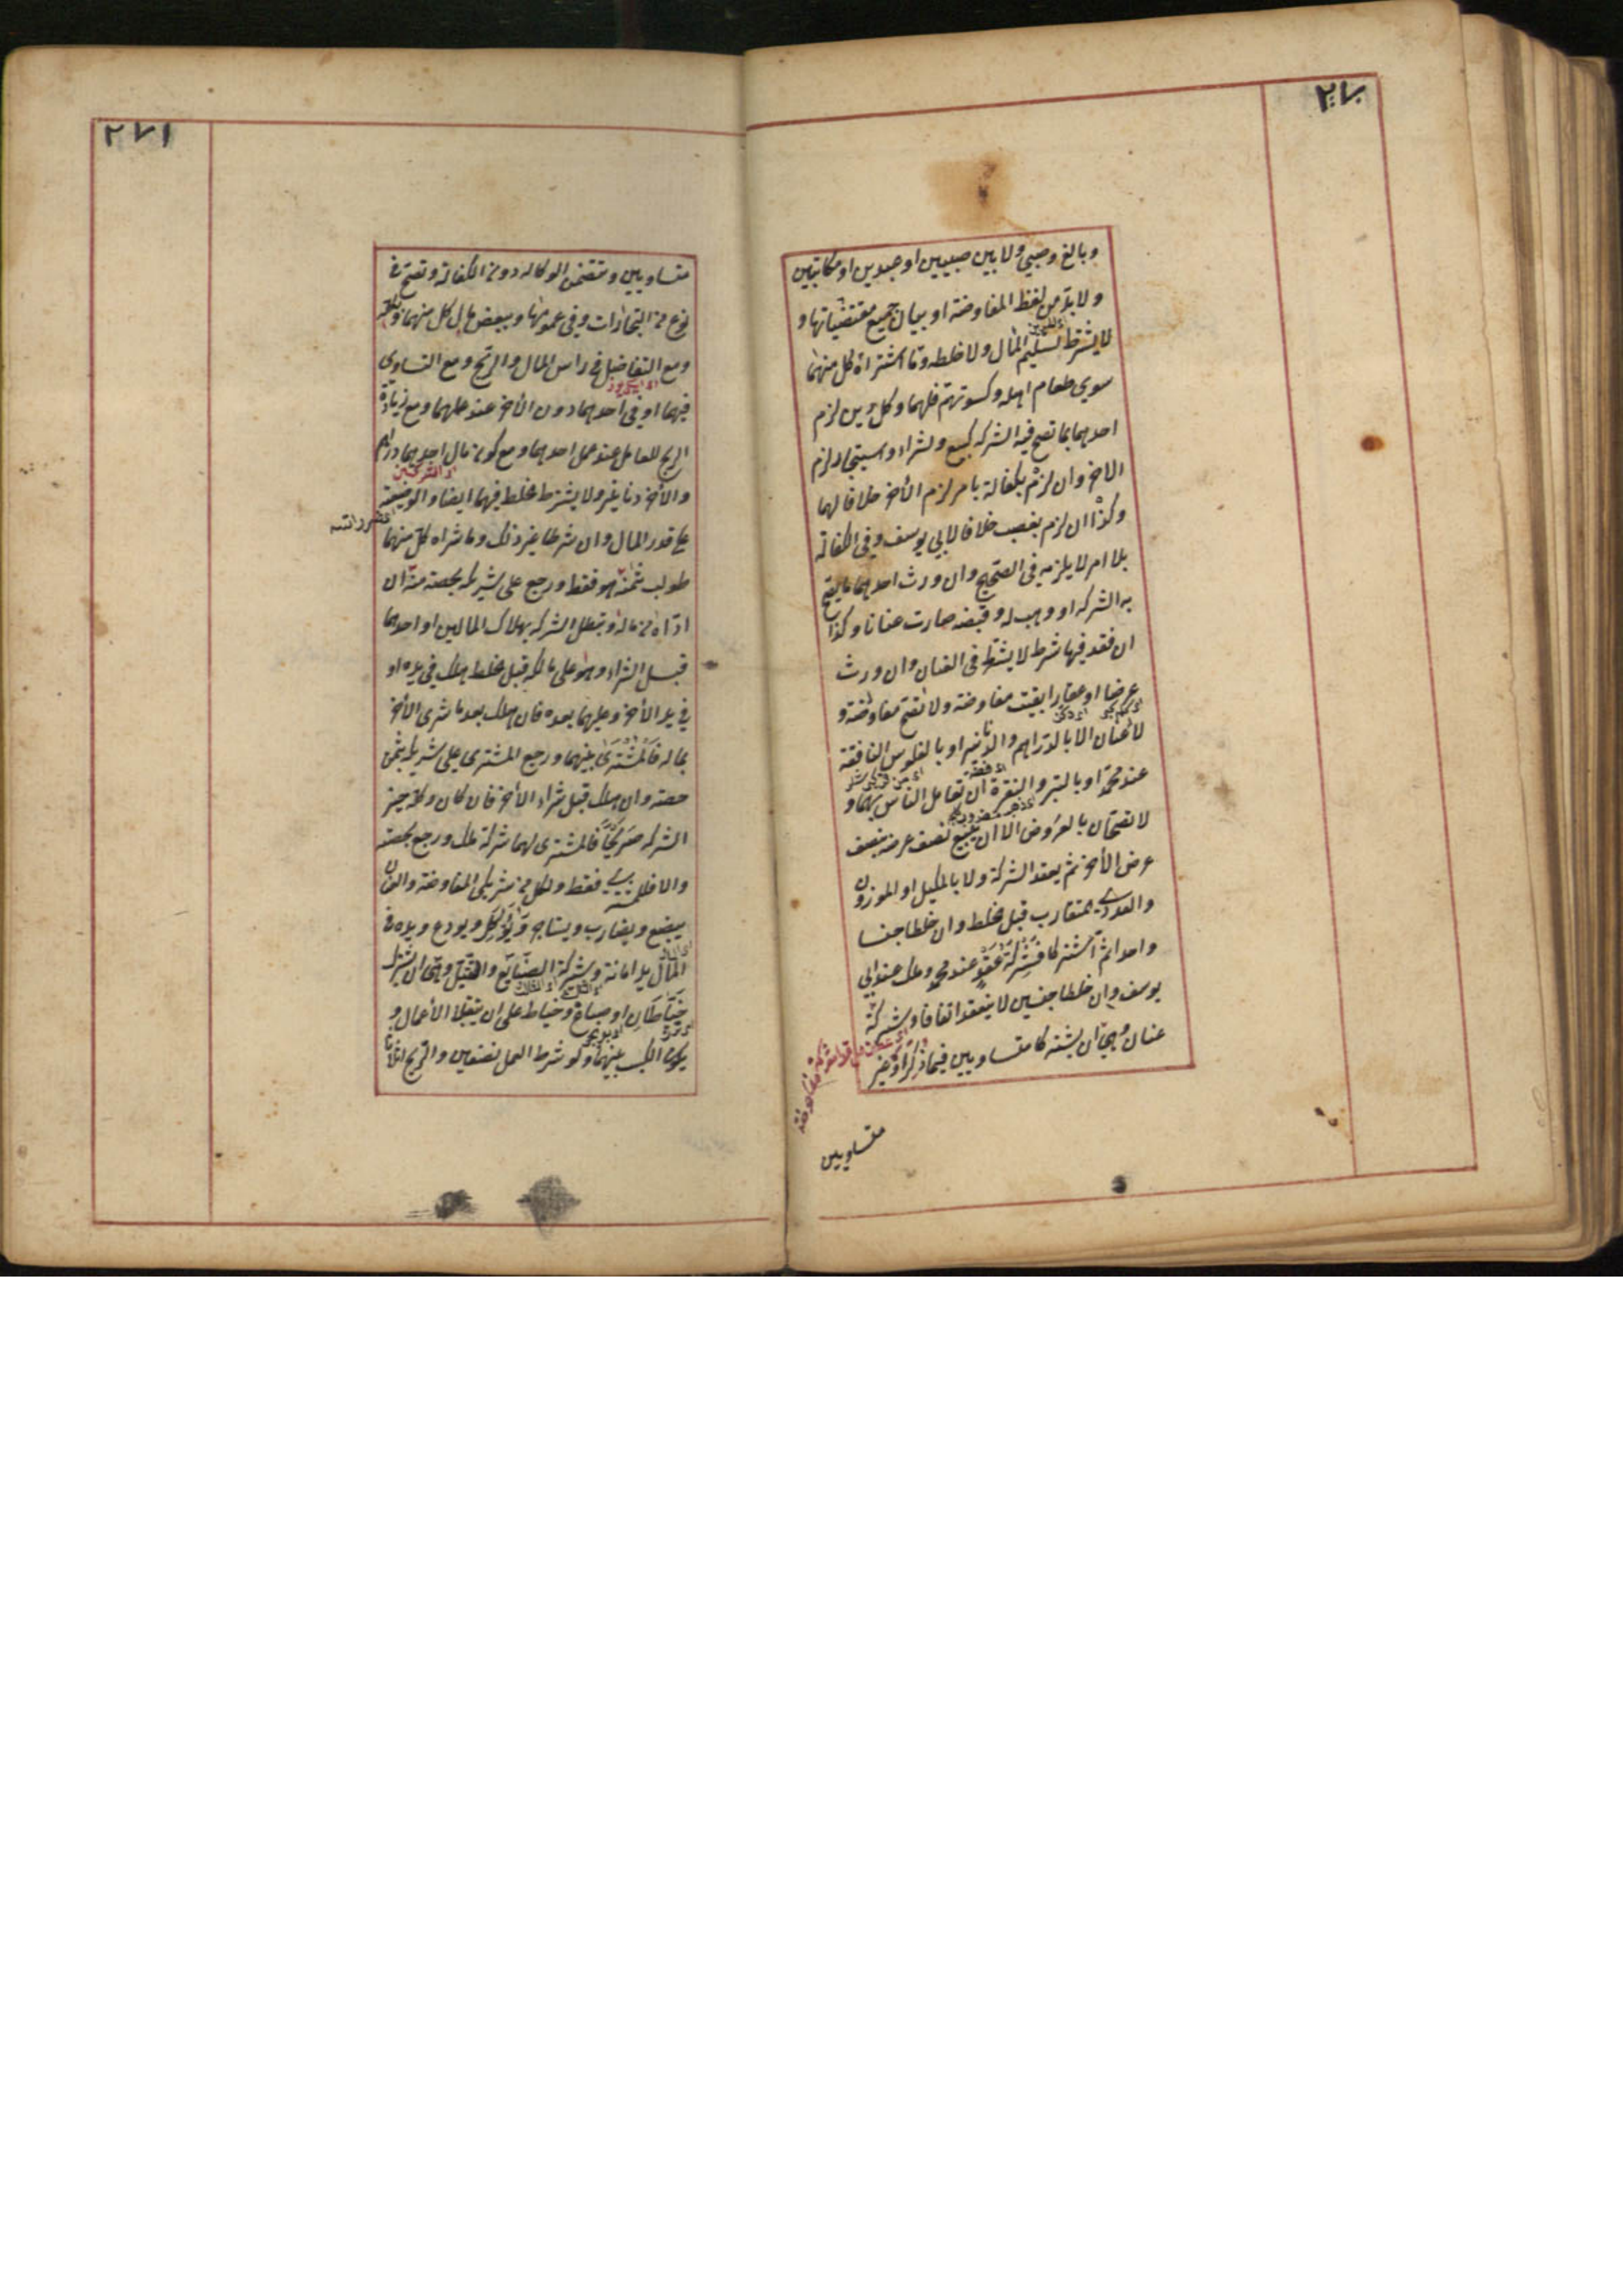 ٢٧٠
وبالغ وصبي ولا بين صبيين او عبدين او مكاتبين
ولا بد من لفظ المفاوضة او بيان جميع مقتضياتها و
لا يشترط تسليم المال ولا خلطه وما اشتراه كل منهما
سوى طعام اهله وكسوتهم فلهما وكل دين لزم
احدهما بما تصح فيه الشركة كبيع وشراء واستيجار لزم
الاخر وان لزم بكفالة بامر لزم الأخر خلافا لهما
وكذا ان لزم بغصب خلافا لابي يوسف وفي الكفالة
بلا امر لا يلزمه في الصحيح وان ورث احدهما ما يصح
به الشركة او وهب له وقبضه صارت عنانا وكذا
ان فقد فيها شرط لا يشترط في العنان وان ورث
عرضا او عقارا بقيت مفاوضة ولا تصح مفاوضة و
لا عنان الا بالدراهم والدنانير او بالفلوس النافقة
عند محمد او بالتبر والنقرة ان تعامل الناس بهما و
لا تصحان بالعروض الا ان يبيع نصف عرضه بنصف
عرض الأخر ثم يعقد الشركة ولا بالمكيل او الموزون
والعددي المتقارب قبل الخلط وان خلطا جنسا
واحدا ثم اشتركا فشركة عقد عند محمد وملك عند ابي
يوسف وان خلطا جنسين لا ينعقد اتفاقا وشركة
عنان وهي ان يشتركا متساويين فيما ذكر او غير
متساويين
٢٧١
متساويين وتتضمن الوكالة دون الكفالة وتصح في
نوع من التجارات وفي عمومها وببعض مال كل منهما وبكله
ومع التفاضل في راس المال والربح ومع التساوي
فيهما او في احدهما دون الأخر عند عملهما ومع زيادة
الربح للعامل عند عمل احدهما ومع كون مال احدهما دراهم
والأخر دنانير ولا يشترط الخلط فيهما ايضا والوضيعة
على قدر المال وان شرطا غير ذلك وما شراه كل منهما
طولب بثمنه هو فقط ورجع على شريكه بحصته منه ان
اداه من ماله وتبطل الشركة بهلاك المالين او احدهما
قبل الشراء وهو على مالكه قبل الخلط هلك في يده او
في يد الأخر وعليهما بعده فان هلك بعد ما شرى الأخر
بماله فالمشترى بينهما ورجع المشتري على شريكه بثمن
حصته وان هلك قبل شراء الأخر فان كان وكله حين
الشركة صريحا فالمشترى لهما شركة ملك ورجع بحصته
والا فللمشتري فقط ولكل من شريكي المفاوضة والعنان
يبضع ويضارب ويستاجر ويوكل ويودع ويده في
المال يد امانة وشركة الصنائع والتقبل وهي ان يشترك
خياطان او صباغ وخياط على ان يتقبلا الأعمال و
يكون الكسب بينهما ولو شرط العمل نصفين والربح اثلاثا